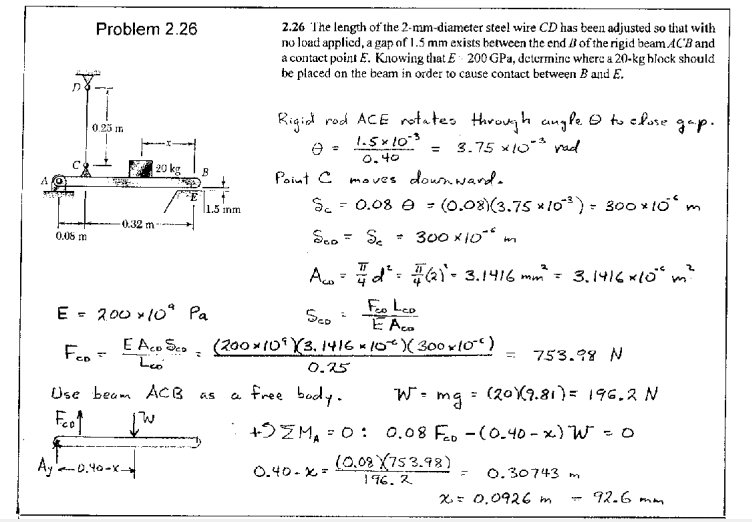 Problem 2.26
2.26 The length of the 2-mm-diameter steel wire CD has been adjusted so that with
no load applied, a gap of 1.5 mm exists between the end B of the rigid beam ACB and
a contact point E. Knowing that E 200 GPa, determine where a 20-kg block should
be placed on the beam in order to cause contact between B and E.
D
0.25 m
x
C
20 kg
B
A
E
1.5 mm
0.32 m
0.08 m
Rigid rod ACE rotates through angle θ to close gap.
θ = 1.5×10⁻³ / 0.40 = 3.75 ×10⁻³ rad
Point C moves downward.
δc = 0.08 θ = (0.08)(3.75 ×10⁻³) = 300×10⁻⁶ m
δCD = δc = 300 ×10⁻⁶ m
ACD = π/4 d² = π/4 (2)² = 3.1416 mm² = 3.1416 ×10⁻⁶ m²
E = 200 ×10⁹ Pa
δCD = FCD LCD / E ACD
FCD = E ACD δCD / LCD = (200×10⁹)(3.1416 ×10⁻⁶)(300×10⁻⁶) / 0.25 = 753.98 N
Use beam ACB as a free body.
W = mg = (20)(9.81) = 196.2 N
FCD
W
Ay
0.40-x
+↺ ΣMA = 0: 0.08 FCD - (0.40 - x) W = 0
0.40 - x = (0.08)(753.98) / 196.2 = 0.30743 m
x = 0.0926 m = 92.6 mm